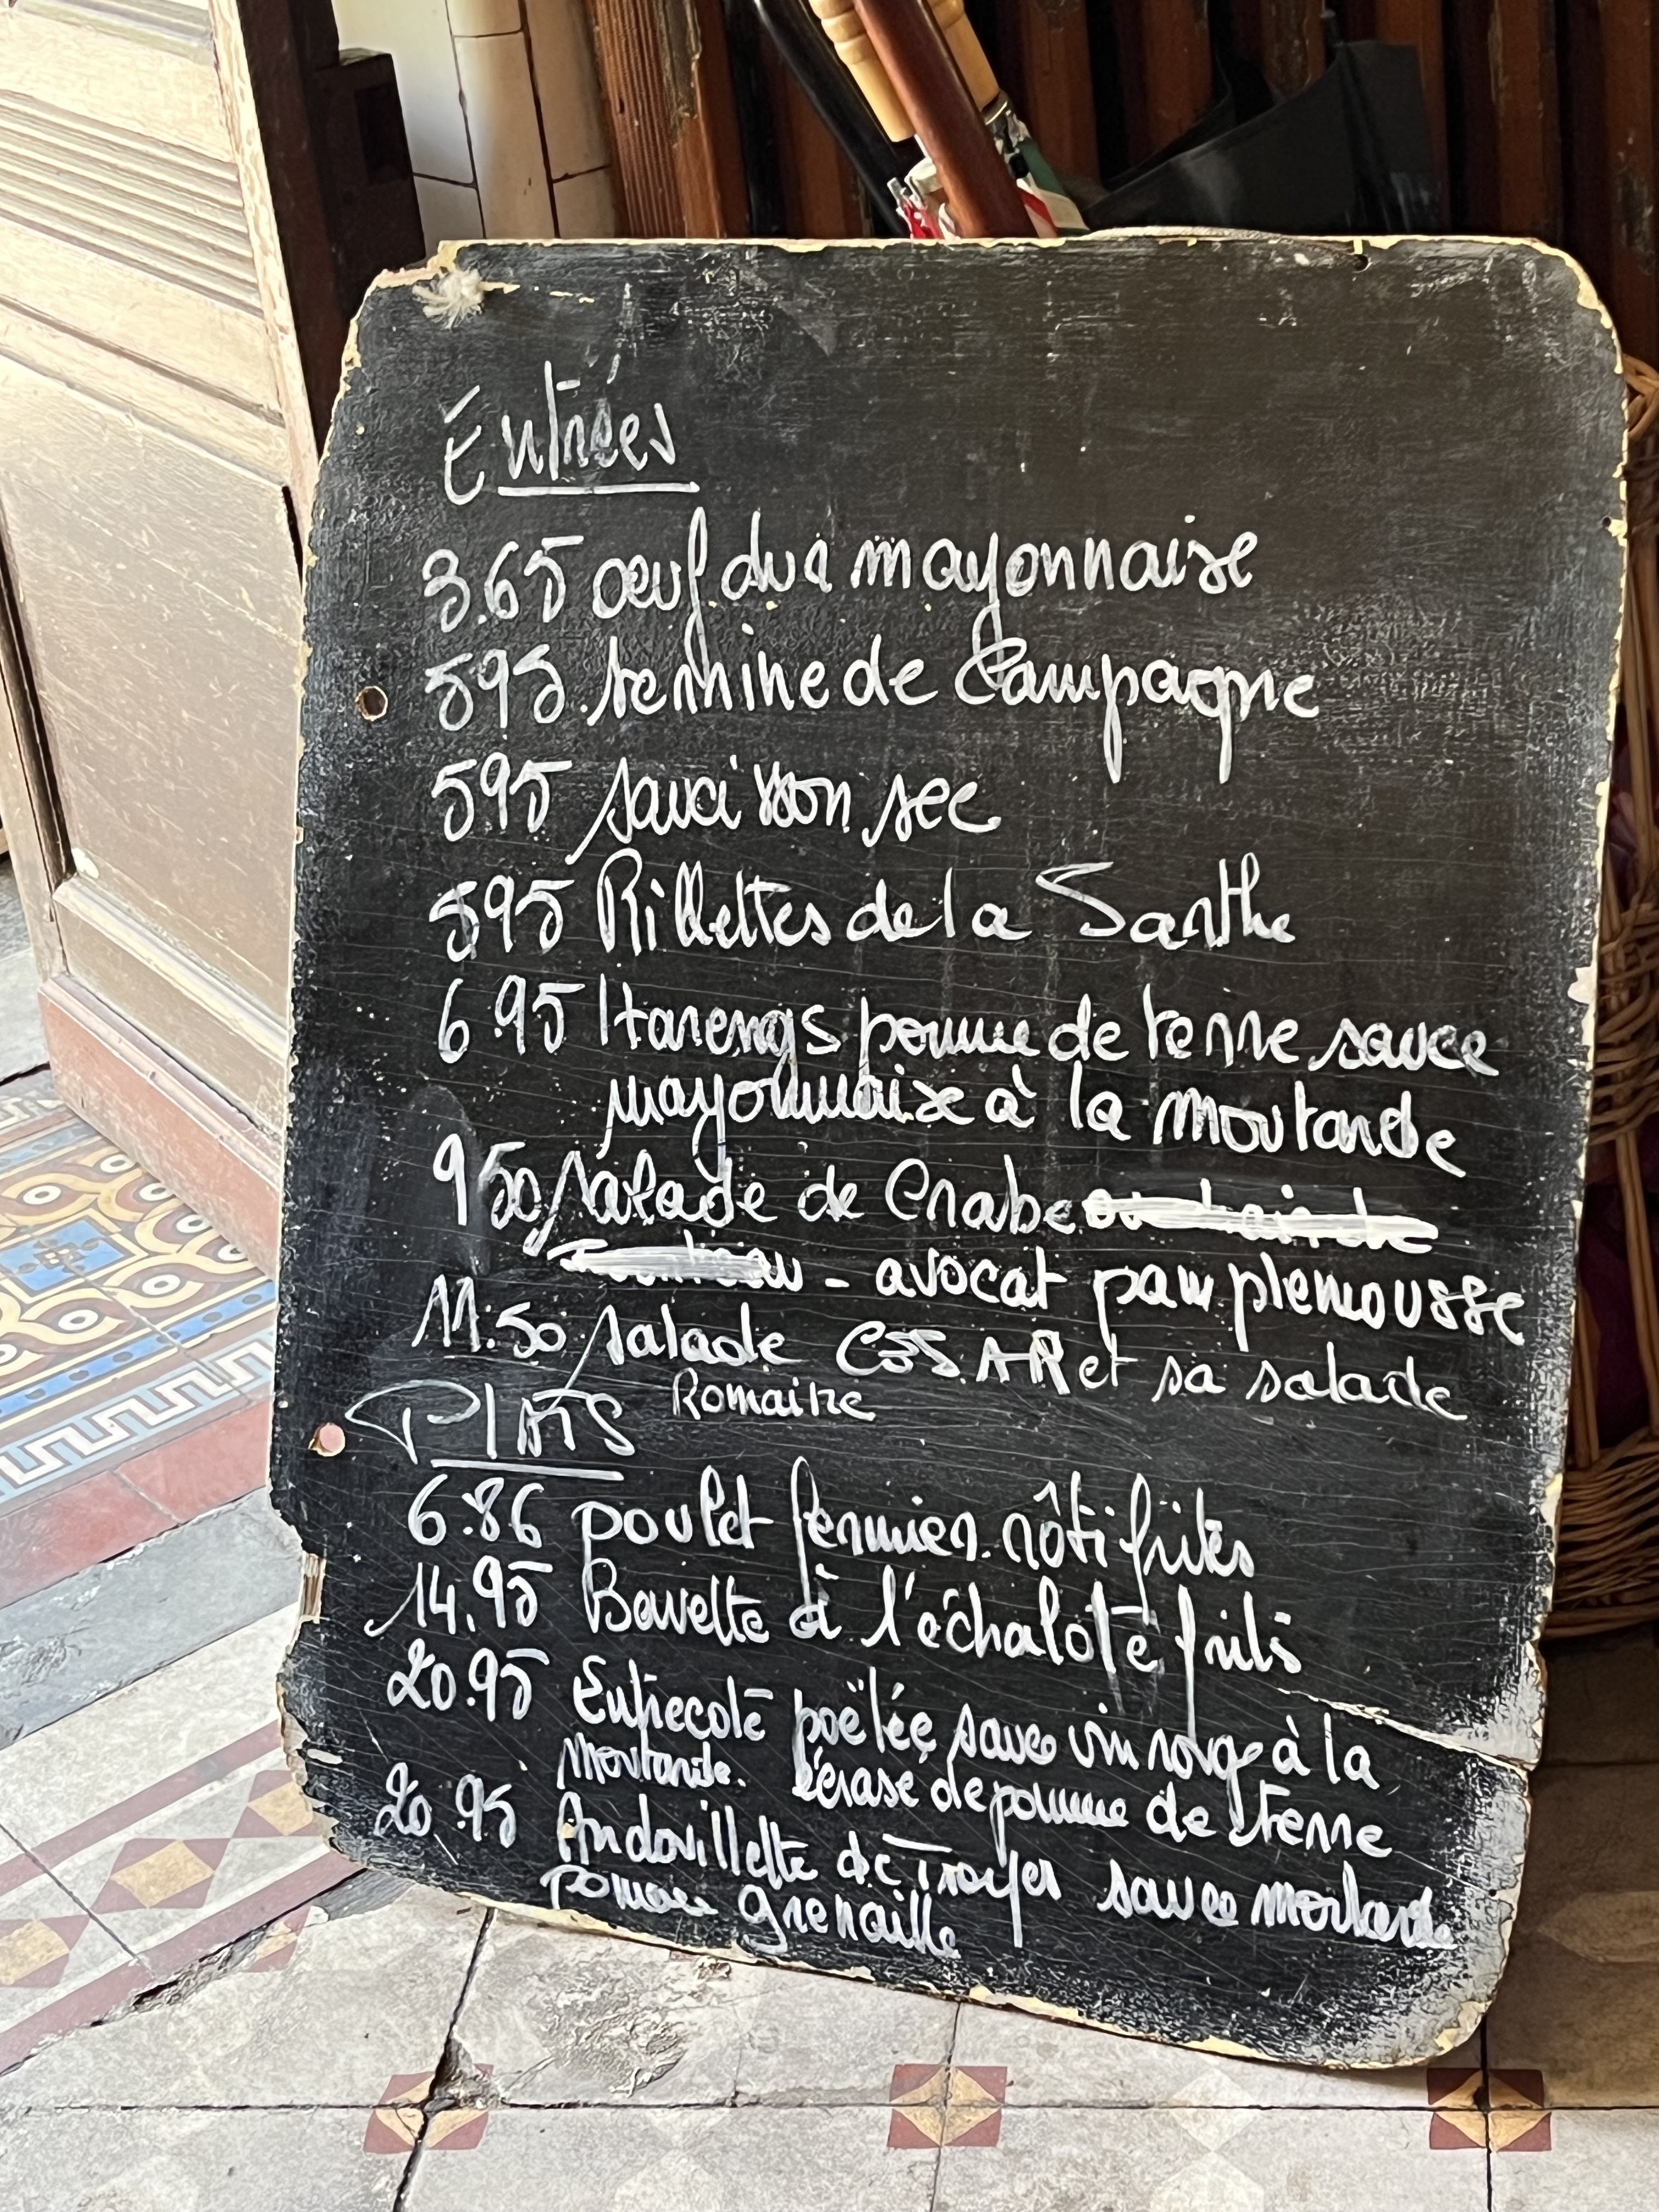 Entrées
3.65 œuf dur mayonnaise
595 terrine de Campagne
595 saucisson sec
595 Rillettes de la Sarthe
6.95 Harengs pomme de terre sauce
mayonnaise à la moutarde
9 50 salade de Crabe
- avocat pamplemousse
11.50 salade CESAR et sa salade
Romaine
PlATS
6.86 poulet fermier rôti frites
14.95 Bavette à l'échalote frites
20.95 Entrecote poëlée sauce vin rouge à la
moutarde. L'écrasé de pomme de terre
20.95 Andouillette de Troyes sauce moutarde
pomme grenaille